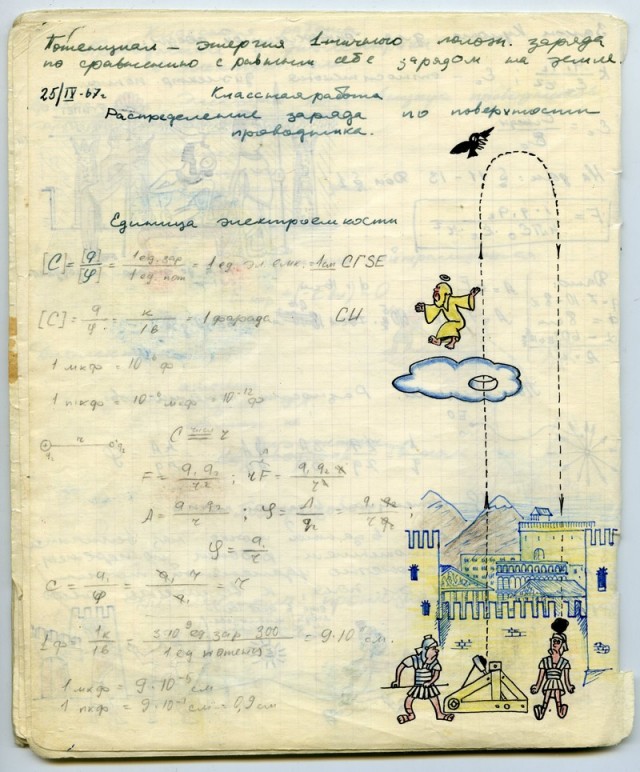 Потенциал – энергия 1-ничного полож. заряда
по сравнению с равным себе зарядом на земле.
25/IV-67г.
Классная работа
Распределение заряда по поверхности
проводника.
Единица электроемкости
[C] = [q]/[φ] = 1 ед. зар / 1 ед. пот = 1 ед. эл емк. = 1 см СГSE
[C] = q/φ = к/1в = 1 фарада СИ
1 мкф = 10⁻⁶ ф
1 пкф = 10⁻⁶ мкф = 10⁻¹² ф
C числ = r
r
q₁ q₂
F = q₁ q₂ / r² ; rF = q₁ q₂ r / r²
A = q₁ q₂ / r ; φ = A / q₂ = q₁ q₂ / r q₂ ;
φ = q₁ / r
C = q₁ / φ = q₁ r / q₁ = r
1ф = 1к / 1в = 3·10⁹ ед. зар 300 / 1 ед потенц = 9·10¹¹ см.
1 мкф = 9·10⁵ см
1 пкф = 9·10⁻¹ см = 0,9 см